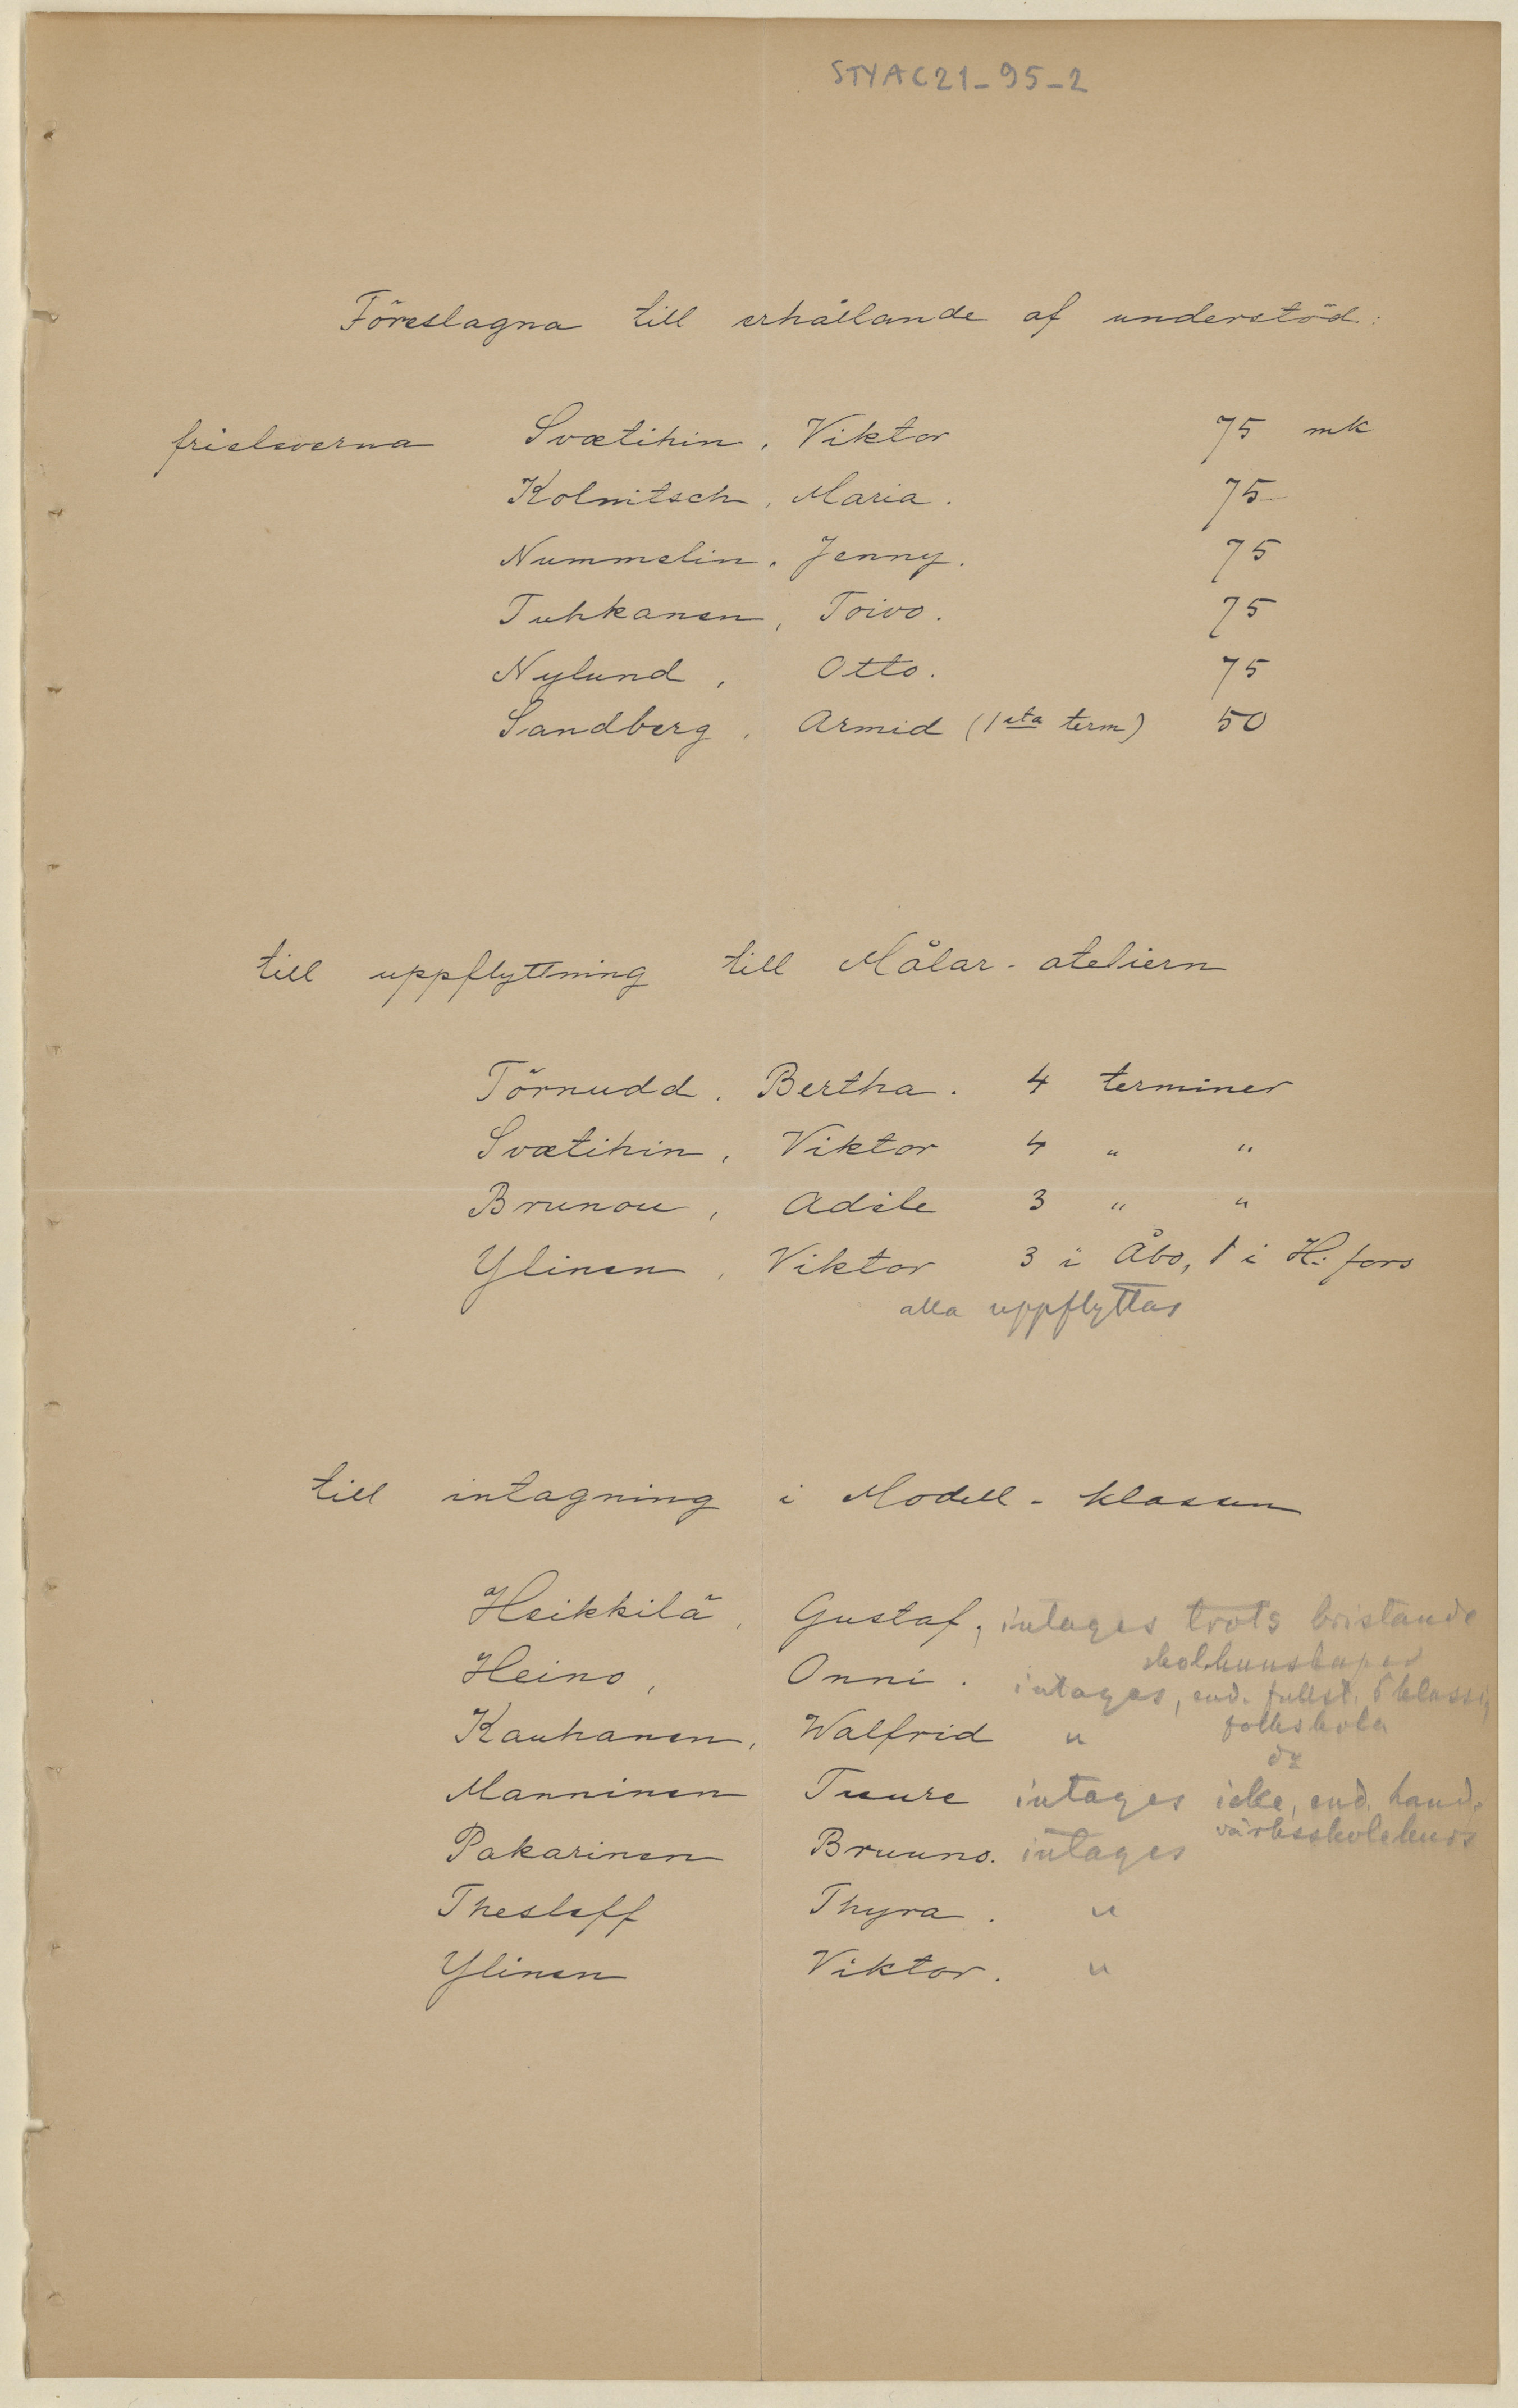 STYAC21-95-2
Föreslagna till erhållande af understöd:
frieleverna Svætihin, Viktor 75 mk
Kolmitsch, Maria. 75
Nummelin, Jenny. 75
Tuhkanen, Toivo. 75
Nylund, Otto. 75
Sandberg, Armid (1sta term) 50
till uppflyttning till Målar-ateliern
Törnudd, Bertha. 4 terminer
Svætihin, Viktor 4 " "
Brunou, Adèle 3 " "
Ylinen, Viktor 3 i Åbo, 1 i H:fors
alla uppflyttas
till intagning i Modell-klassen
Heikkilä, Gustaf, intages trots bristande
skolkunskaper
Heino, Onni. intages, end. fullst. klassig
folkskola
Kauhanen, Walfrid "
Manninen Tuure intages icke, end. hand-
värksskolekurs
Pakarinen Bruuno. intages
Thesleff Thyra. "
Ylinen Viktor. "